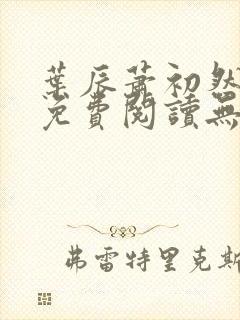 葉辰蕭初然
免費閱讀無
弗雷特里克斯